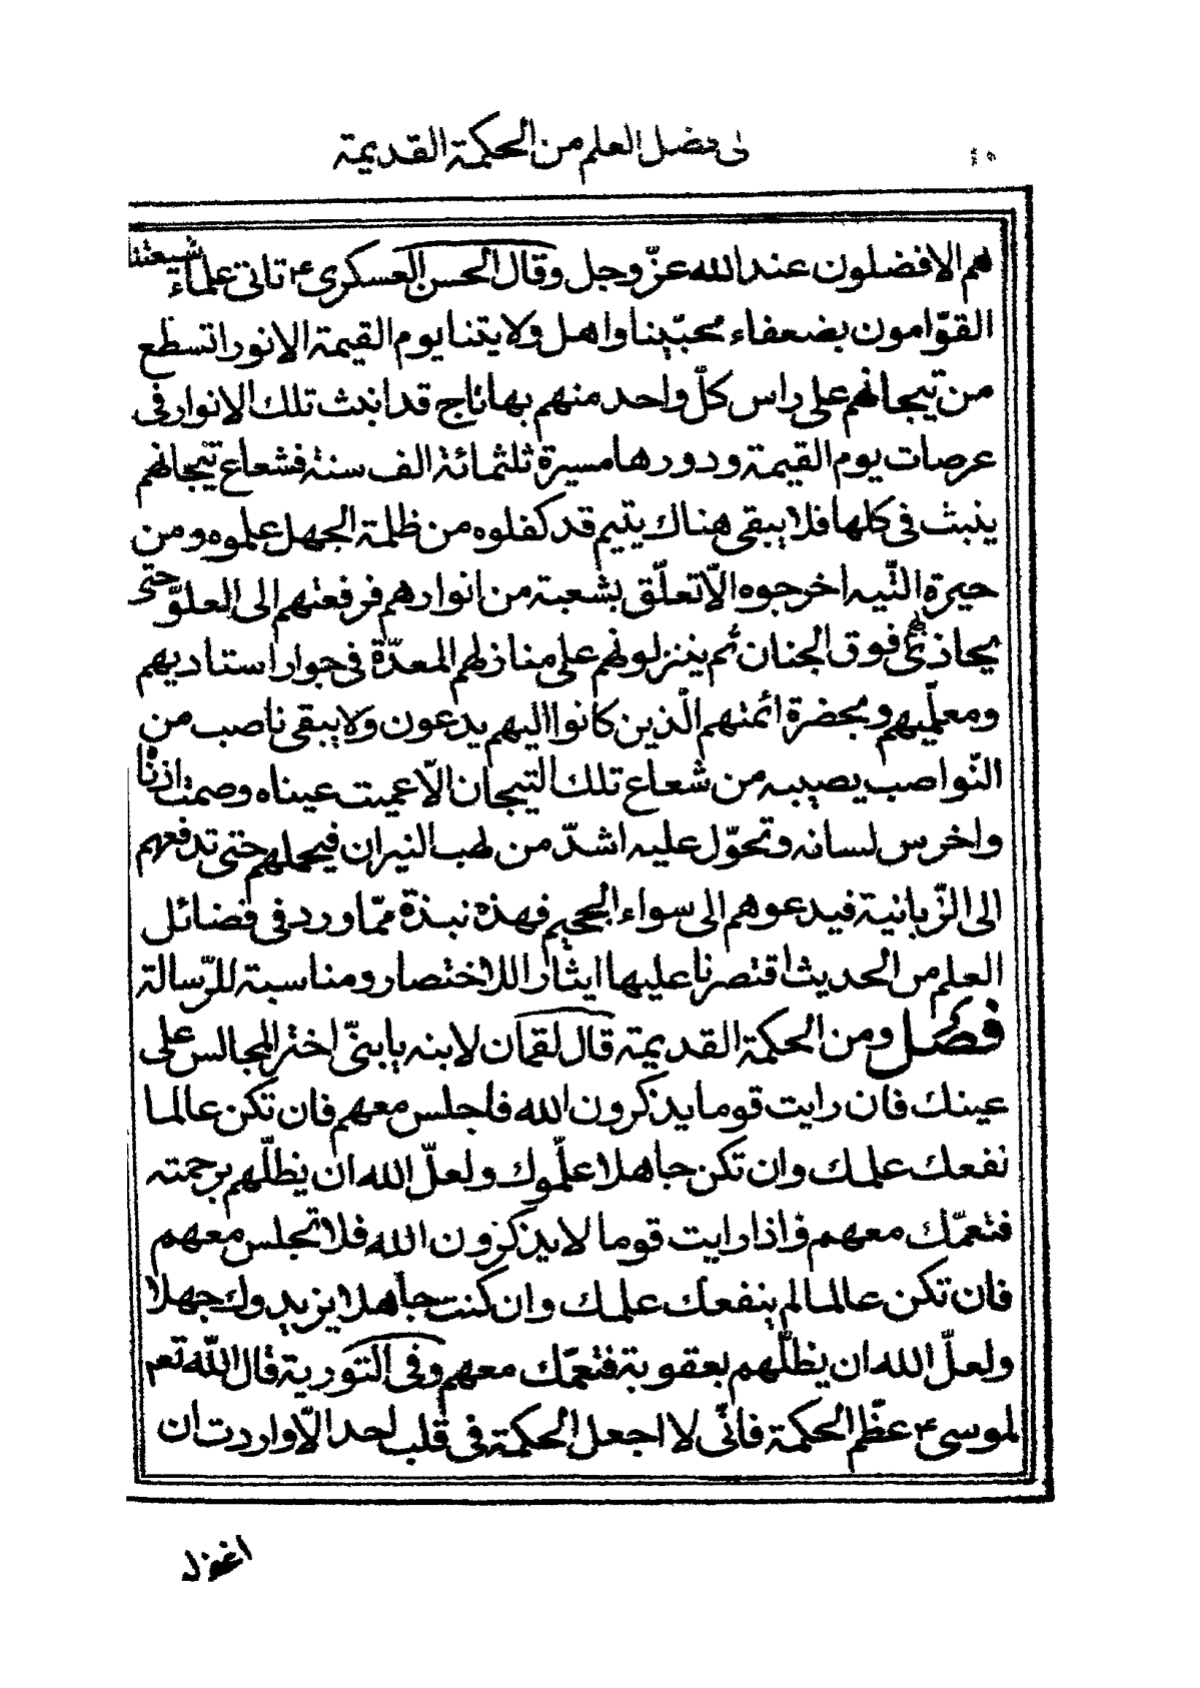 فى فضل العلم من الحكمة القديمة
هم الافضلون عند الله عزّ وجل وقال الحسن العسكرى ع تاتى علماء شيعتنا
القوّامون بضعفاء محبّينا واهل ولايتنا يوم القيمة الانوار تسطع
من تيجانهم على راس كلّ واحد منهم بها تاج قد انبث تلك الانوار فى
عرصات يوم القيمة ودورها مسيرة ثلثمائة الف سنة فشعاع تيجانهم
ينبث فى كلها فلا يبقى هناك يتيم قد كفلوه من ظلمة الجهل علموه ومن
حيرة التّيه اخرجوه الّا تعلّق بشعبة من انوارهم فرفعتهم الى العلوّ حتى
يحاذى بهم فوق الجنان ثم ينزلونهم على منازلهم المعدّة فى جوار استاديهم
ومعلّميهم وبحضرة ائمتهم الّذين كانوا اليهم يدعون ولا يبقى ناصب من
النّواصب يصيبه من شعاع تلك التيجان الّا عميت عيناه وصمت اذناه
واخرس لسانه وتحوّل عليه اشدّ من لهب النيران فيحملهم حتى تدفعهم
الى الزّبانية فيدعوهم الى سواء الجحيم فهذه نبذة ممّا ورد فى فضائل
العلم من الحديث اقتصرنا عليها ايثارا للاختصار ومناسبة للرّسالة
فصل ومن الحكمة القديمة قال لقمان لابنه يا بنىّ اختر المجالس على
عينك فان رايت قوما يذكرون الله فاجلس معهم فان تكن عالما
نفعك علمك وان تكن جاهلا علّموك ولعلّ الله ان يظلّهم برحمته
فتعمّك معهم واذا رايت قوما لا يذكرون الله فلا تجلس معهم
فان تكن عالما لم ينفعك علمك وان كنت جاهلا يزيدوك جهلا
ولعلّ الله ان يظلّهم بعقوبة فتعمّك معهم وفى التورية قال اللّه تعم
لموسى ع عظّم الحكمة فانّى لا اجعل الحكمة فى قلب احد الّا واردت ان
اغفر له